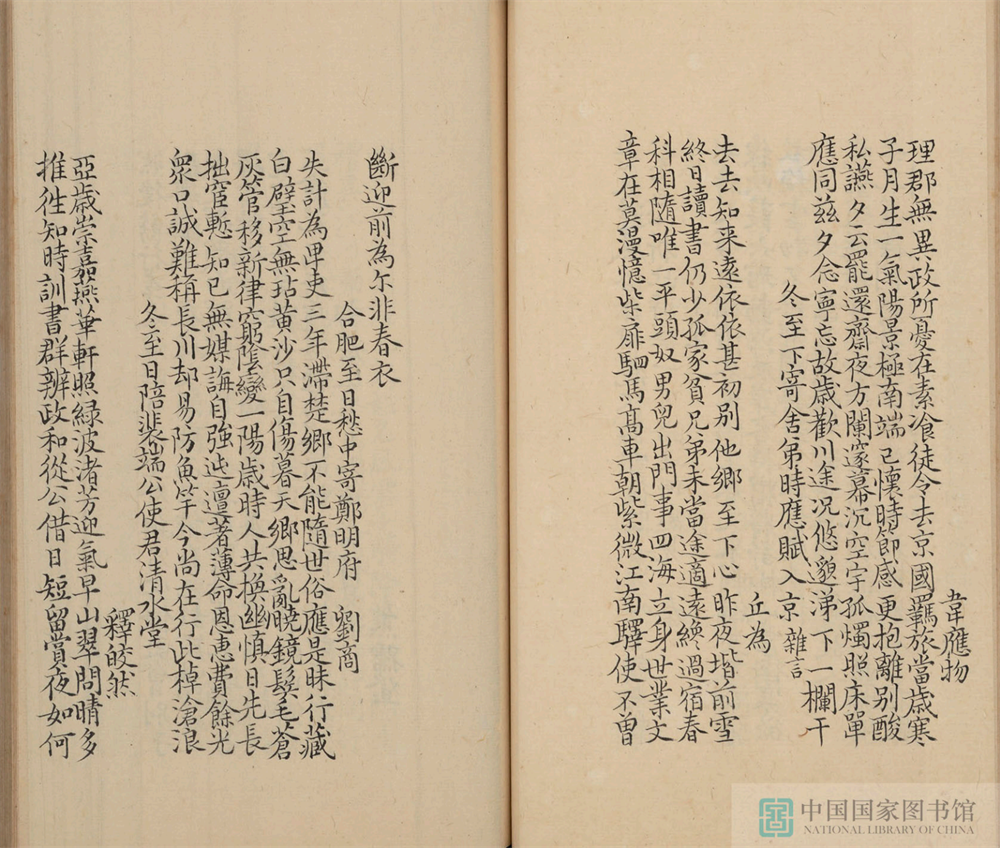 韋應物
理郡無異政所憂在素飡徒令去京國羈旅當歲寒
子月生一氣陽景極南端已懷時節感更抱離别酸
私讌夕云罷還齋夜方闌邃幕沉空宇孤燭照床單
應同兹夕念寧忘故歲歡川途况悠邈涕下一欄干
冬至下寄舍第時應賦入京 雜言
丘為
去去知来遠依依甚初别他鄉至下心昨夜堦前雪
終日讀書仍少孤家貧兄弟未當途適遠纔過宿舂
科相隨唯一平頭奴男兒出門事四海立身世業文
章在莫漫憶柴扉駟馬髙車朝紫微江南驛使不曾
斷迎前為尔非春衣
合肥至日愁中寄鄭明府 劉商
失計為卑吏三年滯楚鄉不能隨世俗應是昧行藏
白璧空無玷黄沙只自傷暮天鄉思亂曉鏡鬓毛蒼
灰管移新律窮陰變一陽歲時人共換幽憤日先長
拙宦慙知已無媒誨自強迍邅著薄命恩惠費餘光
衆口誠難稱長川却易防魚竿今尚在行此棹滄浪
冬至日陪裴端公使君清水堂
釋皎然
亞歲崇嘉燕華軒照緑波渚芳迎氣早山翠問晴多
推徃知時訓書群辨政和從公借日短留賞夜如何
中国国家图书馆
NATIONAL LIBRARY OF CHINA